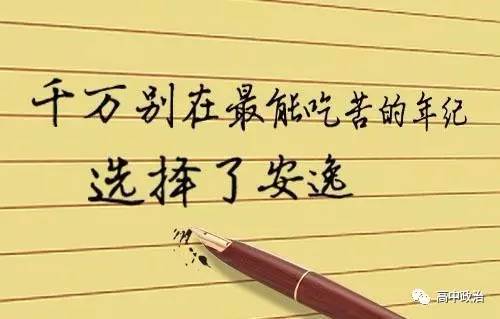 千万别在最能吃苦的年纪
选择了安逸
高中政治